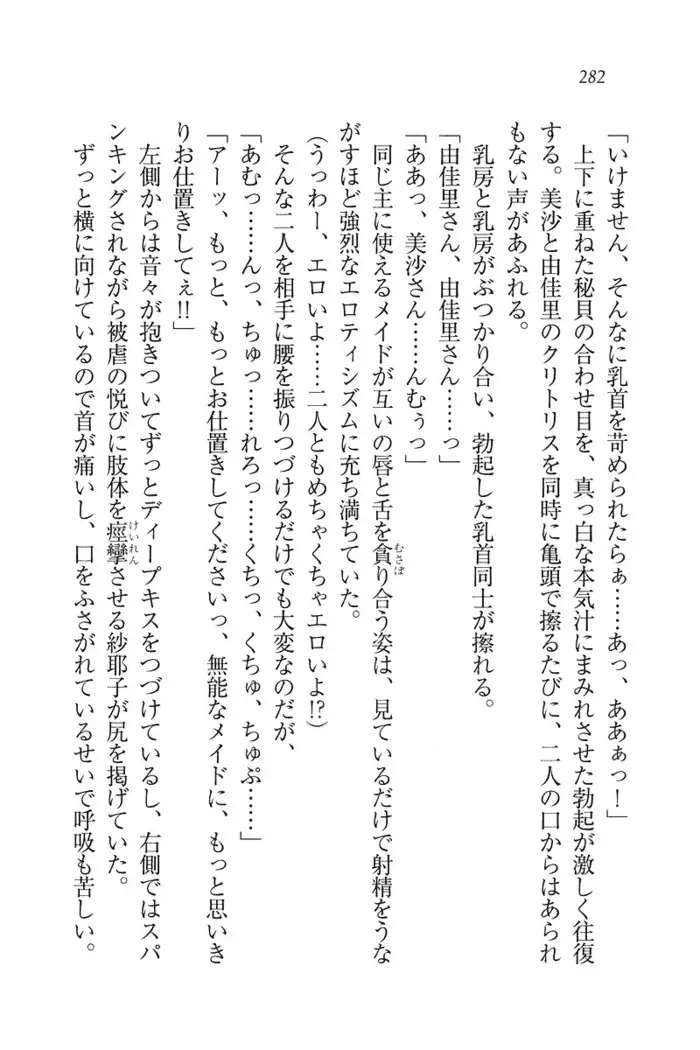 282
「いけません、そんなに乳首を苛められたらぁ……あっ、ああぁっ!」
上下に重ねた秘貝の合わせ目を、真っ白な本気汁にまみれさせた勃起が激しく往復
する。美沙と由佳里のクリトリスを同時に亀頭で擦るたびに、二人の口からはあられ
もない声があふれる。
乳房と乳房がぶつかり合い、勃起した乳首同士が擦れる。
「由佳里さん、由佳里さん……っ」
「ああっ、美沙さん……んむぅっ」
むさぼ
同じ主に使えるメイドが互いの唇と舌を貪り合う姿は、見ているだけで射精をうな
がすほど強烈なエロティシズムに充ち満ちていた。
(うっわー、エロいよ……二人ともめちゃくちゃエロいよ!?)
そんな二人を相手に腰を振りつづけるだけでも大変なのだが、
「あむっ……んっ、ちゅっ……れろっ……くちっ、くちゅ、ちゅぷ……」
「アーッ、もっと、もっとお仕置きしてくださいっ、無能なメイドに、もっと思いき
りお仕置きしてぇ!!」
左側からは音々が抱きついてずっとディープキスをつづけているし、右側ではスパ
けいれん
ンキングされながら被虐の悦びに肢体を痙攣させる紗耶子が尻を掲げていた。
ずっと横に向けているので首が痛いし、口をふさがれているせいで呼吸も苦しい。